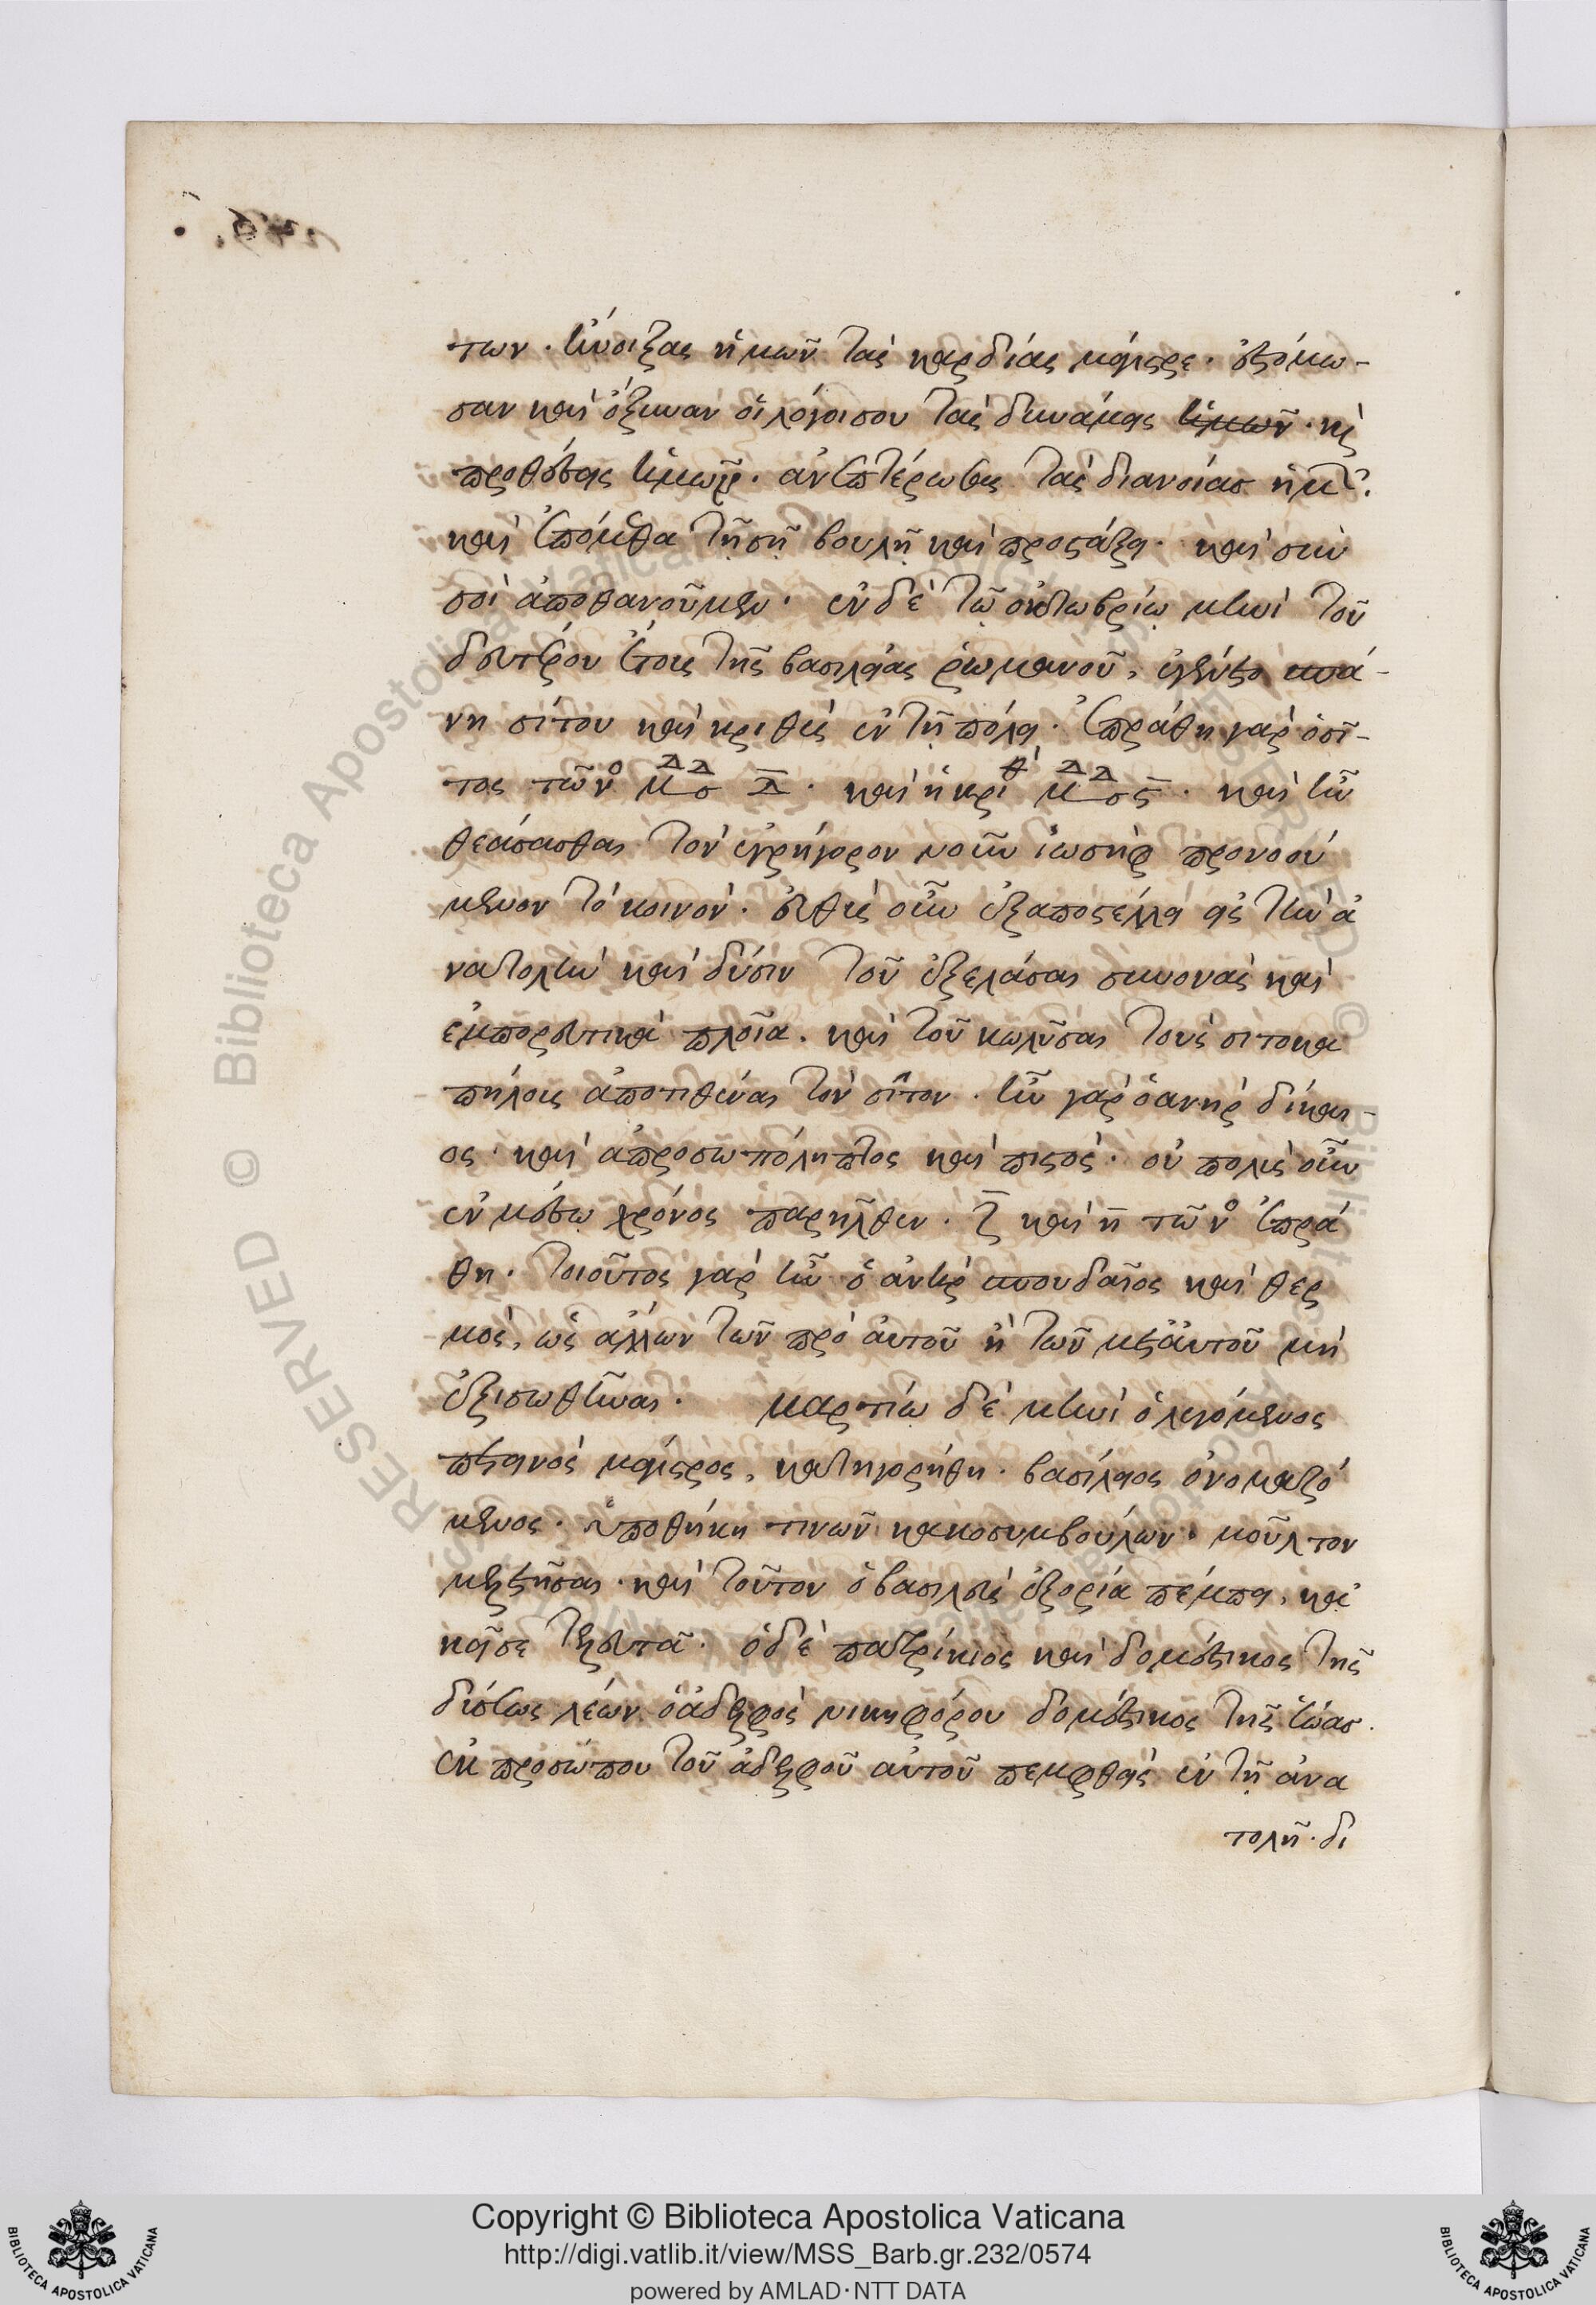 των. ἤνοιξας ἡμῶν τὰς καρδίας μάγιστρε. ἐστόμω-
σαν καὶ ὄξυναν οἱ λόγοι σου τὰς δυνάμεις ἡμῶν. κ(αὶ)
προθέσεις ἡμῶν. ἀνεπτέρωσας τὰς διανοίας ἡμῶν.
καὶ ἑπόμεθα τῇ σῇ βουλῇ καὶ προστάξει. καὶ σὺν
σοὶ ἀποθανοῦμεν. ἐν δὲ τῷ ὀκτωβρίῳ μηνὶ τοῦ
δευτέρου ἔτους τῆς βασιλείας ῥωμανοῦ, ἐγένετο σπά-
νη σίτου καὶ κριθῆς ἐν τῇ πόλει. ἐπράθη γὰρ ὁ σῖ-
τος τῷ νο μοδ δ. καὶ ἡ κριθ μοδ ϛ. καὶ ἦν
θεάσασθαι τὸν ἐγρήγορον νοῦν ἰωσὴφ προνοού
μενον τὸ κοινόν. εὐθὺς οὖν ἐξαποστέλλει εἰς τὴν ἀ
νατολὴν καὶ δύσιν τοῦ ἐξελάσαι σιτωνὰς καὶ
ἐμπορευτικὰ πλοῖα. καὶ τοῦ κωλῦσαι τοὺς σιτοκα
πήλους ἀποτιθέναι τὸν σῖτον. ἦν γὰρ ὁ ἀνὴρ δίκαι-
ος. καὶ ἀπροσωπόληπτος καὶ πιστός. οὐ πολὺς οὖν
ἐν μέσῳ χρόνος παρῆλθεν. ζ καὶ η τῷ νο ἐπρά
θη. τοιοῦτος γὰρ ἦν ὁ ἀνὴρ σπουδαῖος καὶ θερ
μὸς, ὡς ἄλλων τῶν πρὸ αὐτοῦ ἢ τῶν μετ' αὐτοῦ μὴ
ἐξισωθῆναι. μαρτίῳ δὲ μηνὶ ὁ λεγόμενος
πετεινὸς μάγιστρος, κατηγορήθη. βασίλειος ὀνομαζό
μενος. ὑποθήκῃ τινῶν κακοσυμβούλων. μοῦλτον
μελετῆσαι. καὶ τοῦτον ὁ βασιλεὺς ἐξορίᾳ πέμπει, κἀ
κεῖσε τελευτᾷ. ὁ δὲ πατρίκιος καὶ δομέστικος τῆς
δύσεως λέων ὁ ἀδελφὸς νικηφόρου δομέστικος τῆς ἑῴας.
ἐκ προσώπου τοῦ ἀδελφοῦ αὐτοῦ πεμφθεὶς ἐν τῇ ἀνα
τολῇ. δι
Copyright © Biblioteca Apostolica Vaticana
http://digi.vatlib.it/view/MSS_Barb.gr.232/0574
powered by AMLAD·NTT DATA